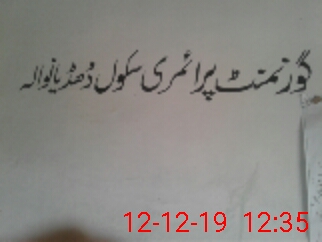 گورنمنٹ پرائمری سکول ڈھڈیانوالہ
12-12-19 12:35